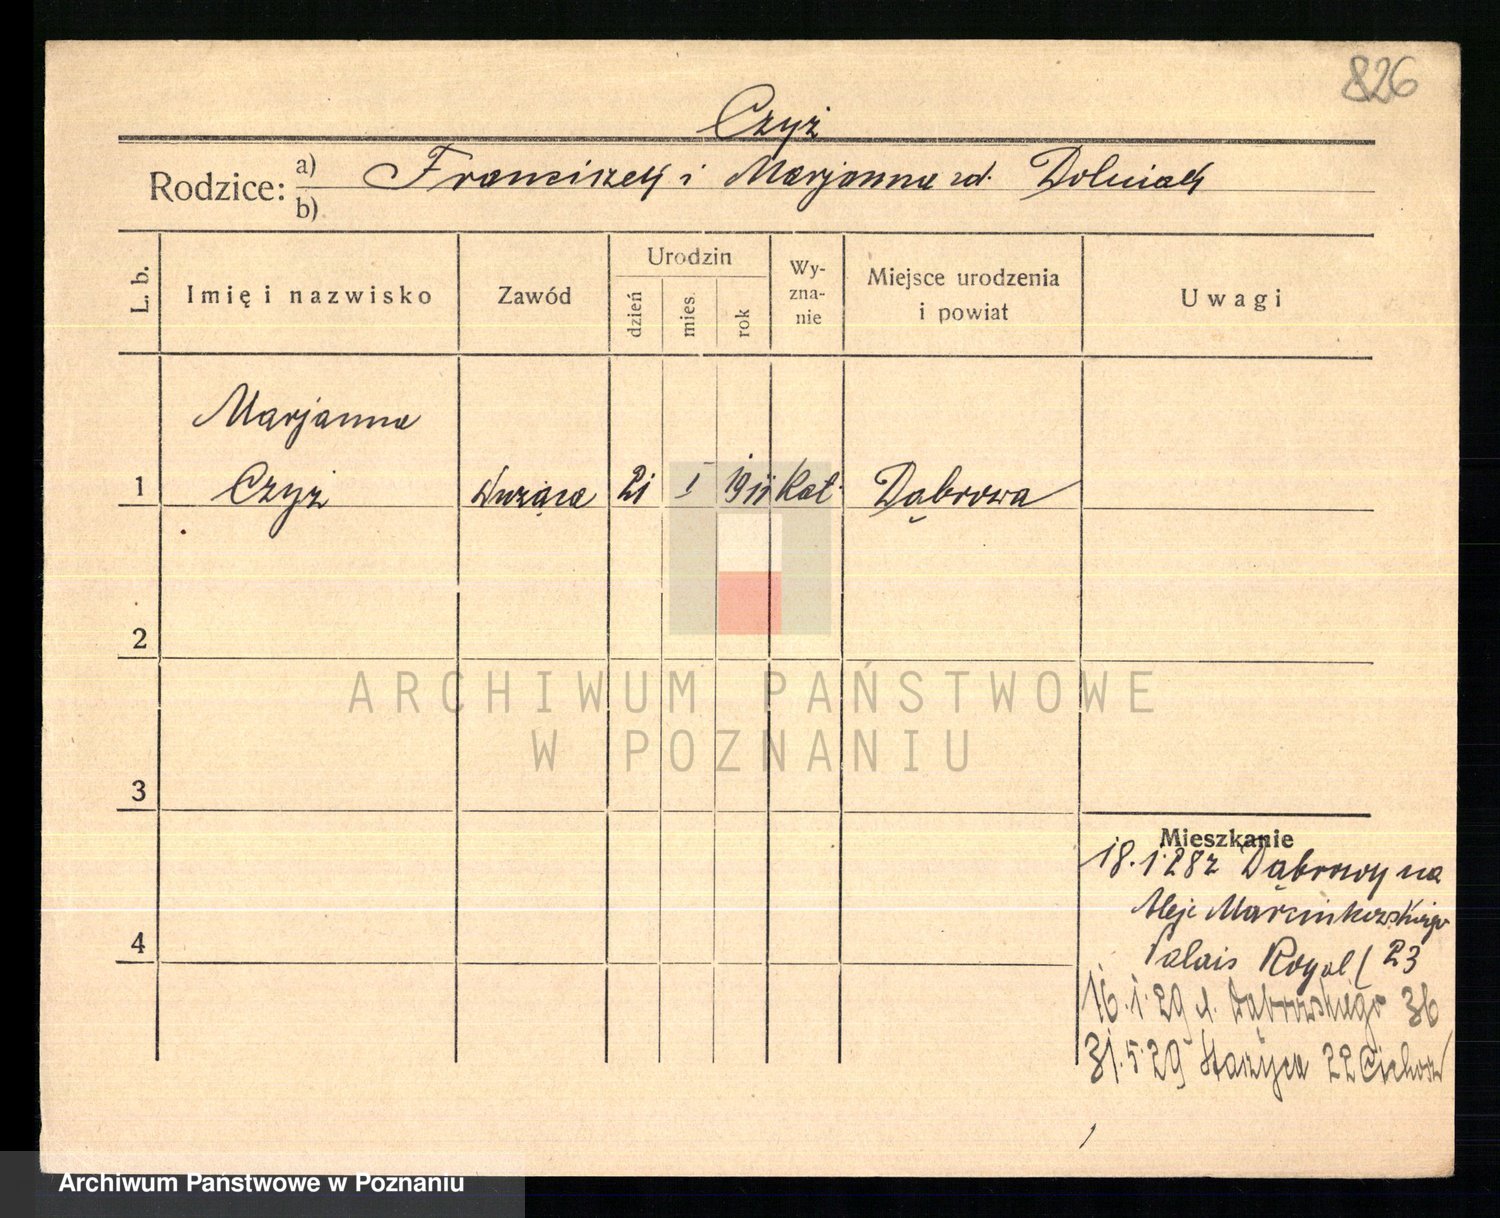 826
Czyż
Rodzice: a) Franciszek i Marjanna zd. Dolniak
b)
L. b. Imię i nazwisko Zawód Urodzin dzień mies. rok Wy-zna-nie Miejsce urodzenia i powiat Uwagi
Marjanna
1 Czyż służąca 21 I 1911 Kat. Dąbrowa
2
ARCHIWUM PAŃSTWOWE
W POZNANIU
3
Mieszkanie
18.1.28 z Dąbrowy na
Aleje Marcinkowskiego
Palais Royal 23
16.1.29 Dąbrowskiego 36
31.5.29 22
4
Archiwum Państwowe w Poznaniu